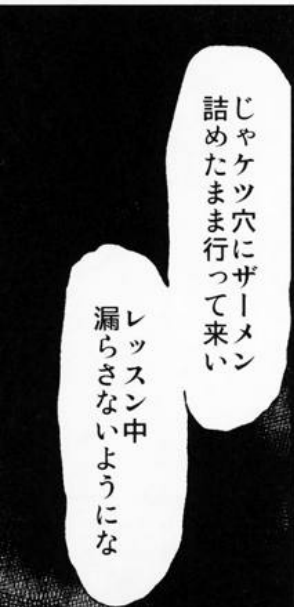 じゃケツ穴にザーメン
詰めたまま行って来い
レッスン中
漏らさないようにな